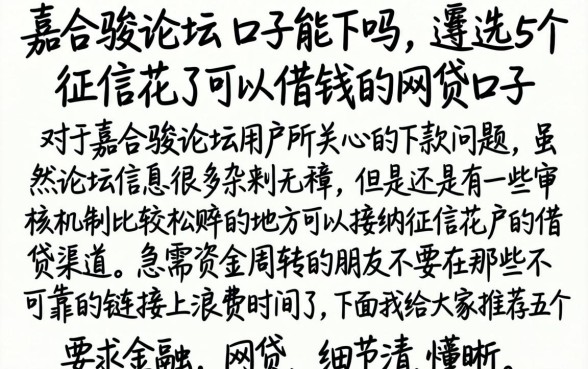 嘉合骏论坛口子能下吗,遴选5个
征信花了可以借钱的网贷口子
对于嘉合骏论坛用户所关心的下款问题,虽
然论坛信息很多杂刺无樟,但是还是有一些审
核机制比较松赔的地方可以接纳征信花户的借
贷渠道。急需资金周转的朋友不要在那些不
可靠的链接上浪费时间了,下面我给大家推荐五个
要求金融、网贷、细节清,懂晰。